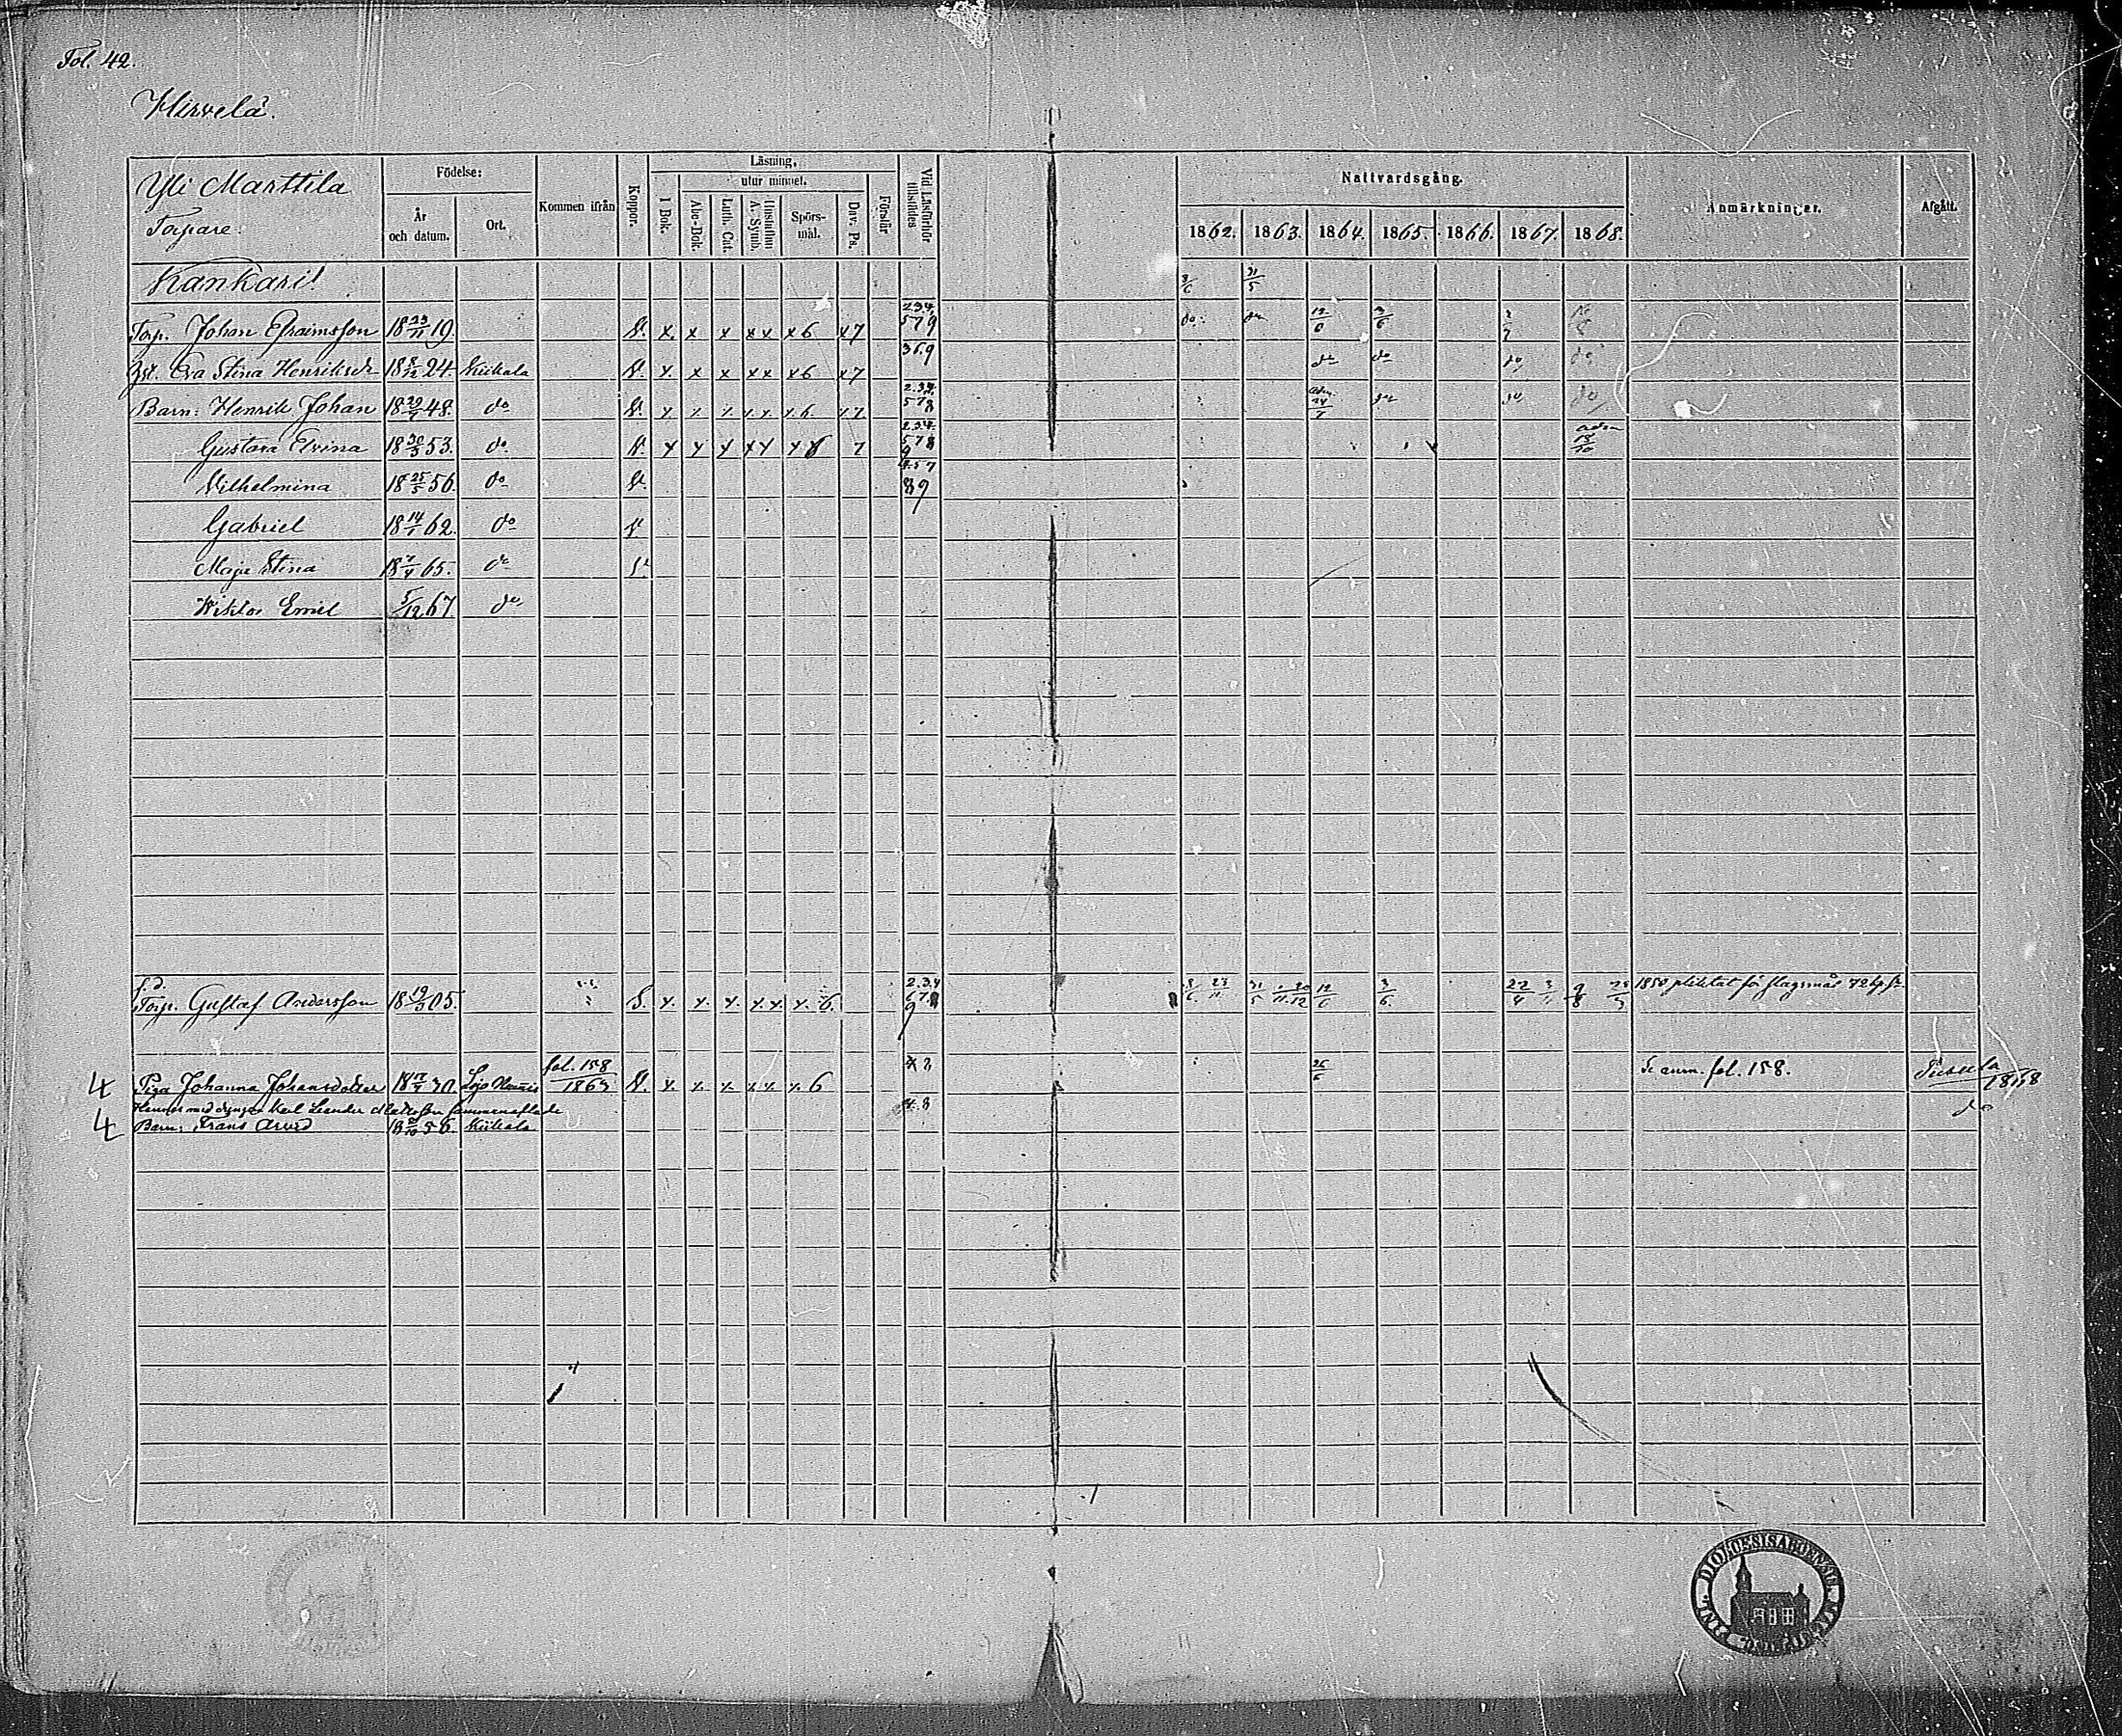 Fol. 42.
Hirvelä.
Yli Marttila
Torpare.
Födelse:
År och datum.
Ort.
Kommen ifrån
Koppor.
Läsning,
utur minnet.
I Bok.
Abc-Bok.
Luth. Cat.
Hustaflan A. Symb.
Spörs-mål.
Dav. Ps.
Förstår
Vid Läsförhör tillstädes
Nattvardsgång.
1862. 1863. 1864. 1865. 1866. 1867. 1868.
Anmärkningar.
Afgått.
Kankari 31/5
Torp. Johan Efraimsson 18 23/11 19. x. x x x x x 6 x 7 234 579 do do 12/6 3/6
Hst. Eva Stina Henriksdr 24. Kiikala x x x x x x 6 x 7 36.9 do do do do
Barn: Henrik Johan 48. do x x x x x x 6 x 7 2.3.4. 578 do do do
Gustava Elvina 18 30/3 53. do x x x x x x 7 2.3.4. 578 9 adm 18/10
Vilhelmina 18 25/5 56. do 4.5 7 89
Gabriel 18 14/1 62. do
Maja Stina 65. do
Wiktor Emil 5/12 67 do
f.d.
Torp. Gustaf Andersson 18 19/3 05. x. x. x. x. x. x. 6. 2.3.4 678 9 12/6 3/6 22/4 1850 pliktat för slagsmål
4 Piga Johanna Johansdotter 30. Lojo fol. 158 1863 x. x. x. x x x. 6 26/6 Se anm. fol. 158. Pusula 1868
Hennes med drängen Karl Leander sammanaflade
4 Barn: Frans Arvid 58. Kiikala 4.8 do